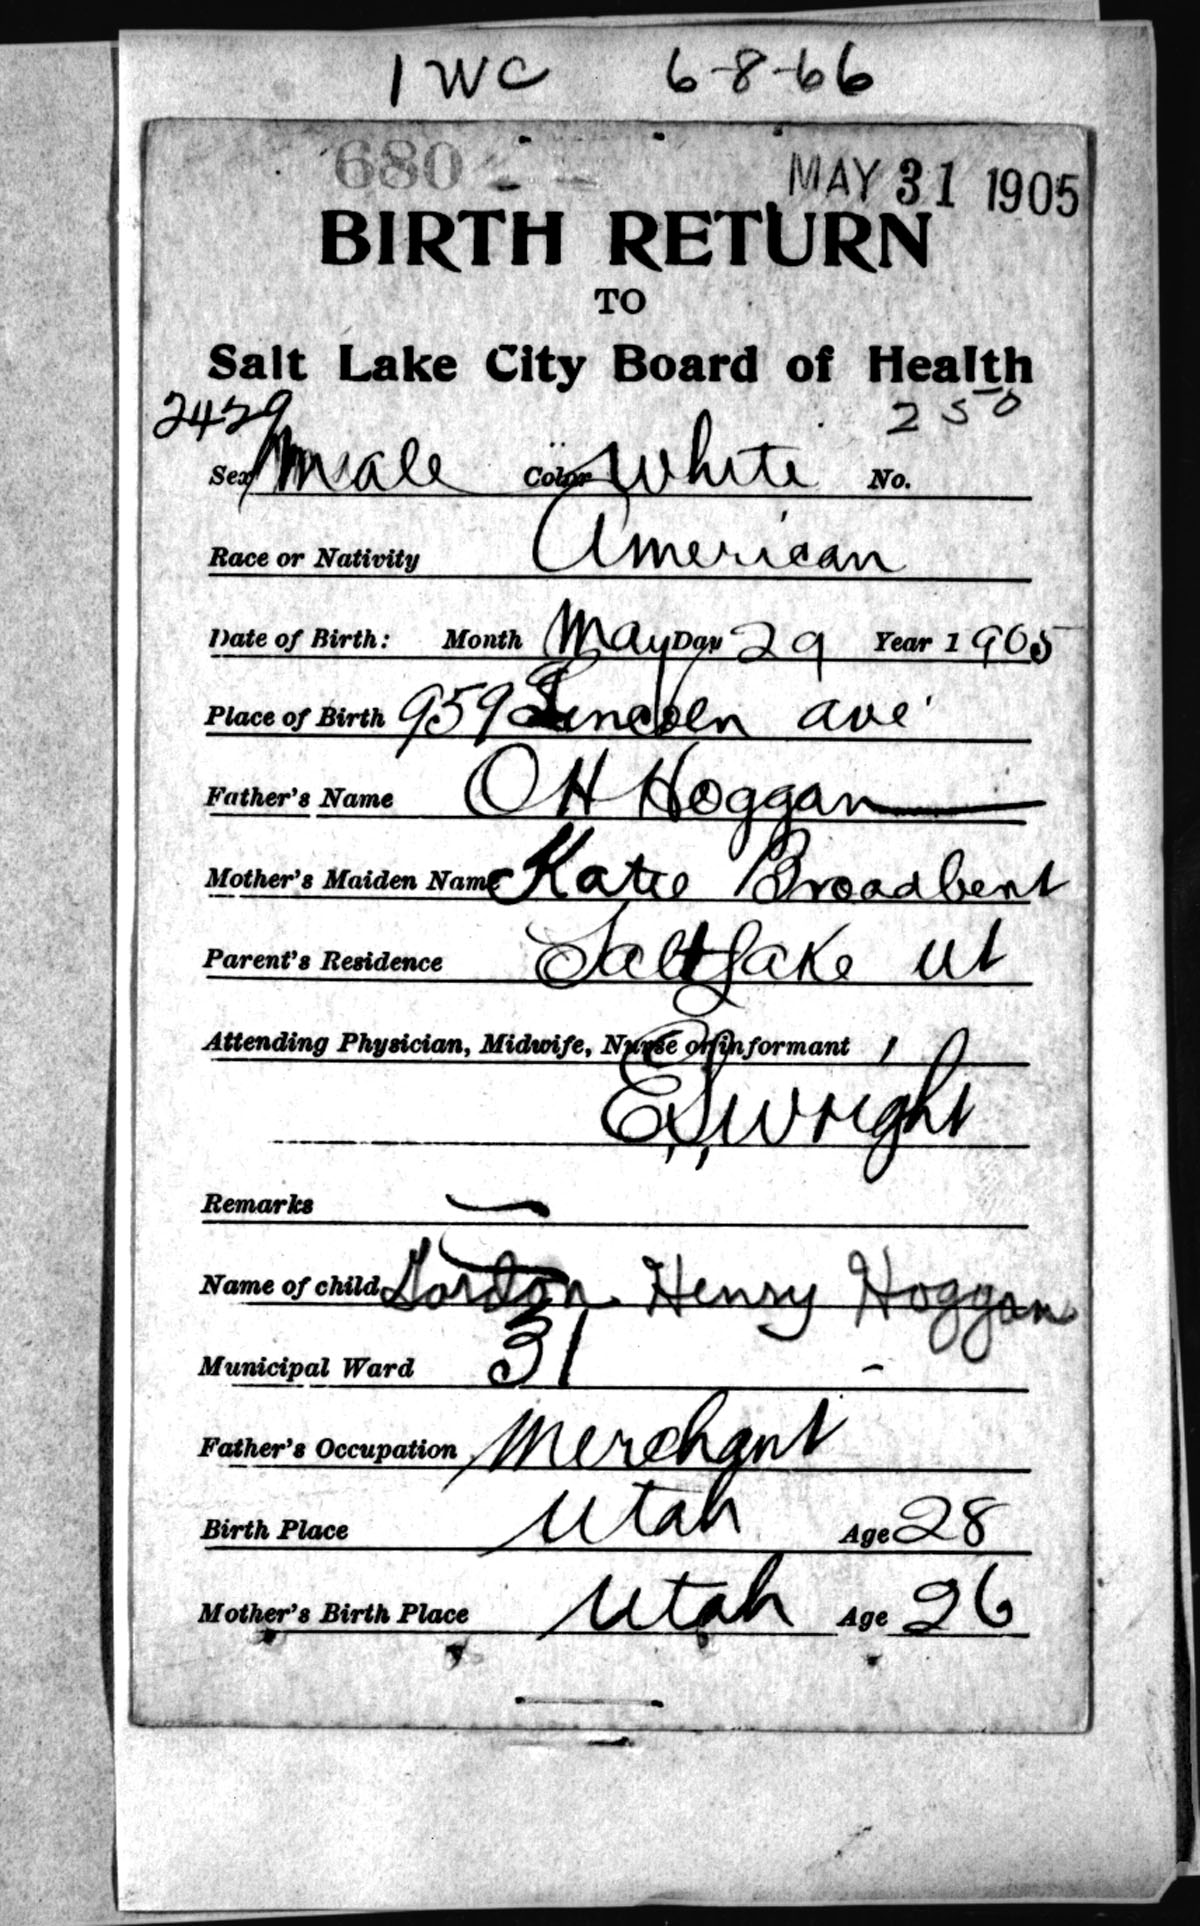 1 WC 6-8-66
680
MAY 31 1905
BIRTH RETURN
TO
Salt Lake City Board of Health
2429 250
Sex Male Color White No.
Race or Nativity American
Date of Birth: Month May Day 29 Year 1905
Place of Birth 959 Lincoln ave
Father's Name O H Hoggan
Mother's Maiden Name Katie Broadbent
Parent's Residence Salt Lake Ut
Attending Physician, Midwife, Nurse or informant
E. S. Wright
Remarks
Name of child Gordon Henry Hoggan
Municipal Ward 31 -
Father's Occupation Merchant
Birth Place Utah Age 28
Mother's Birth Place Utah Age 26